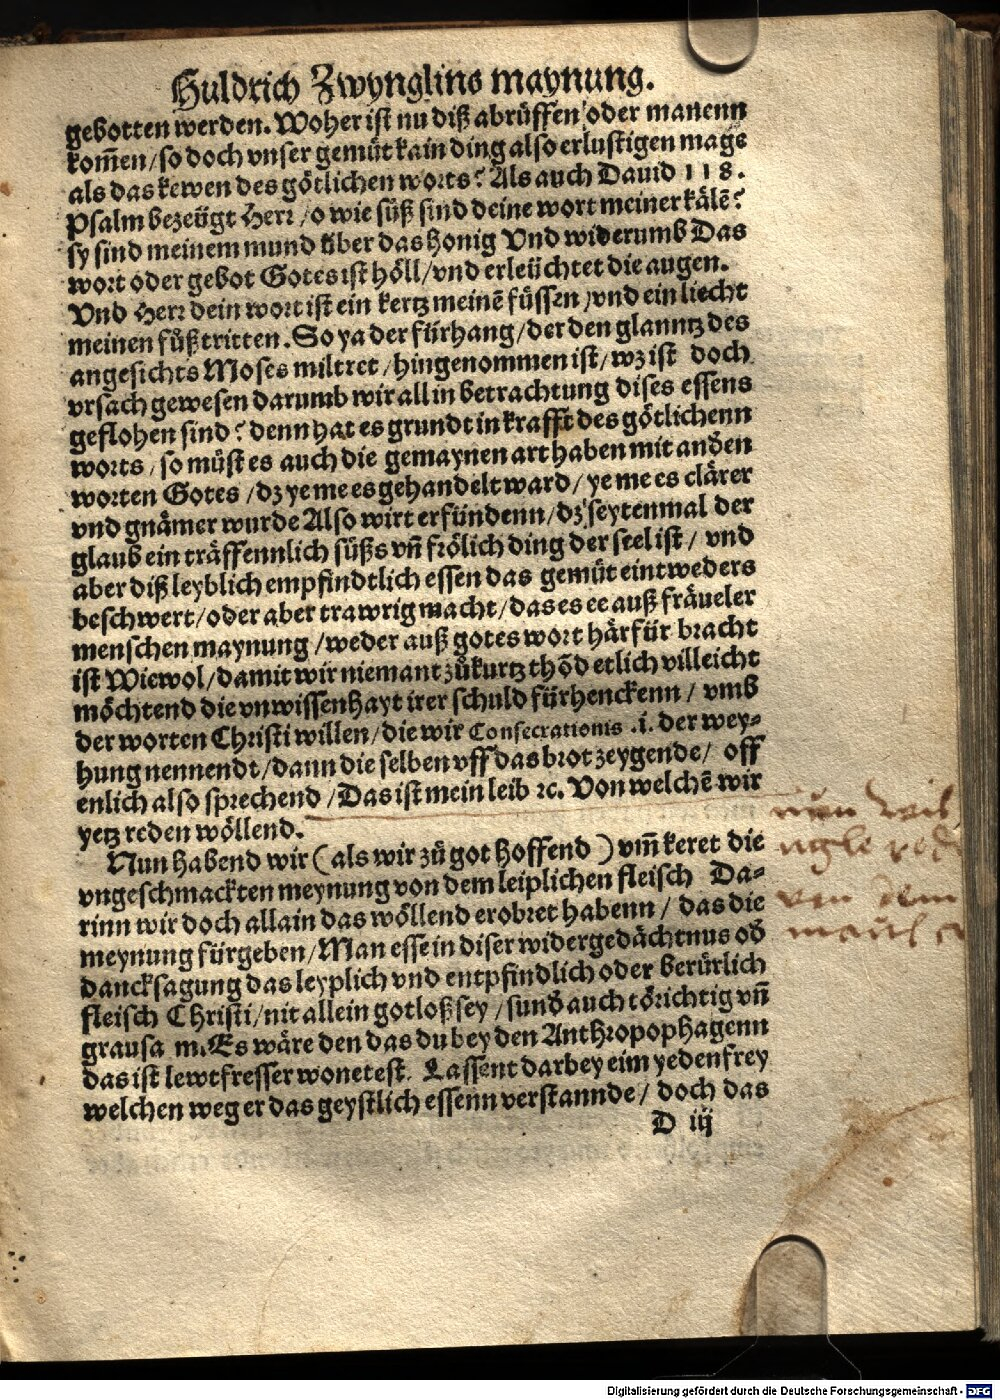 Huldrich Zwynglins maynung.
gebotten werden. Woher ist nu diß abrüffen oder manenn
kom̄en/so doch vnser gemüt kain ding also erlustigen mags
als das kewen des götlichen worts? Als auch Dauid 118.
Psalm bezeügt Herr/o wie süß sind deine wort meiner kälē?
sy sind meinem mund über das honig Vnd widerumb Das
wort oder gebot Gotes ist höll/vnd erleüchtet die augen.
Vnd Herr dein wort ist ein kertz meinē füssen/vnd ein liecht
meinen füßtritten. So ya der fürhang/der den glanntz des
angesichts Moses miltret/hingenommen ist/wz ist doch
vrsach gewesen darumb wir all in betrachtung dises essens
geflohen sind? denn hat es grundt in krafft des götlichenn
worts/so müst es auch die gemaynen art haben mit andēn
worten Gotes/dz ye me es gehandelt ward/ye me es clärer
vnd gnämer wurde Also wirt erfündenn/dz seytenmal der
glaub ein träffennlich süßs vn̄ frölich ding der seel ist/vnd
aber diß leyblich empfindtlich essen das gemüt eintweders
beschwert/oder aber trawrig macht/das es ee auß fräueler
menschen maynung/weder auß gotes wort härfür bracht
ist Wiewol/damit wir niemant zůkurtz thōd etlich villeicht
möchtend die vnwissenhayt irer schuld fürhenckenn/vmb
der worten Christi willen/die wir Consecrationis .i. der wey⸗
hung nennendt/dann die selben vff das brot zeygende/off
enlich also sprechend/Das ist mein leib ꝛc. Von welchē wir
yetz reden wöllend.
Nun habend wir (als wir zů got hoffend) vm̄keret die
vngeschmackten meynung von dem leiplichen fleisch Da⸗
rinn wir doch allain das wöllend erobret habenn/das die
meynung fürgeben/Man esse in diser widergedächtnus od̄
dancksagung das leyplich vnd entpfindlich oder berürlich
fleisch Christi/nit allein gotloß sey/sund̄ auch törichtig vn̄
grausa m. Es wäre den das du bey den Anthropophagenn
das ist lewtfresser wonetest. Lassent darbey eim yeden frey
welchen weg er das geystlich essenn verstannde/doch das
D iij
nun wil
ngle red
von dem
maul
Digitalisierung gefördert durch die Deutsche Forschungsgemeinschaft - DFG